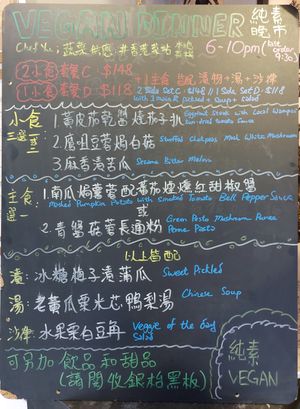 VEGAN DINNER 純素
晚市
6-10pm (last order 9:30)
(2小食)套餐C: $148
(1小食)套餐D: $118
+1主食 皆配漬物+湯+沙律
2 Side Set C: $148 / 1 Side Set D: $118
with 1 main & pickled + Soup + salad
小食
1. 黃皮茄乾醬燒茄子扒
Eggplant Steak with Local Wampee
Sun dried Tomato Sauce
2. 鷹咀豆蓉焗白菇 Stuffed Chickpeas Mash White Mushroom
3. 麻香涼苦瓜 Sesame Bitter Melon
主食
選一
1. 南瓜焗薯蓉配蕃茄煙燻紅甜椒醬
Mashed Pumpkin Potato with Smoked Tomato Bell Pepper Sauce
或
2. 青醬菇蓉長通粉 Green Pesto Mushroom Puree
Penne Pasta
以上皆配
漬: 冰糖梅子漬蒲瓜 Sweet Pickled
湯: 老黃瓜粟米芯鴨梨湯 Chinese Soup
沙律: 水果栗白苒 Veggie of the day
Salad
可另加飲品和甜品
(請閱收銀枱黑板)
純素
VEGAN